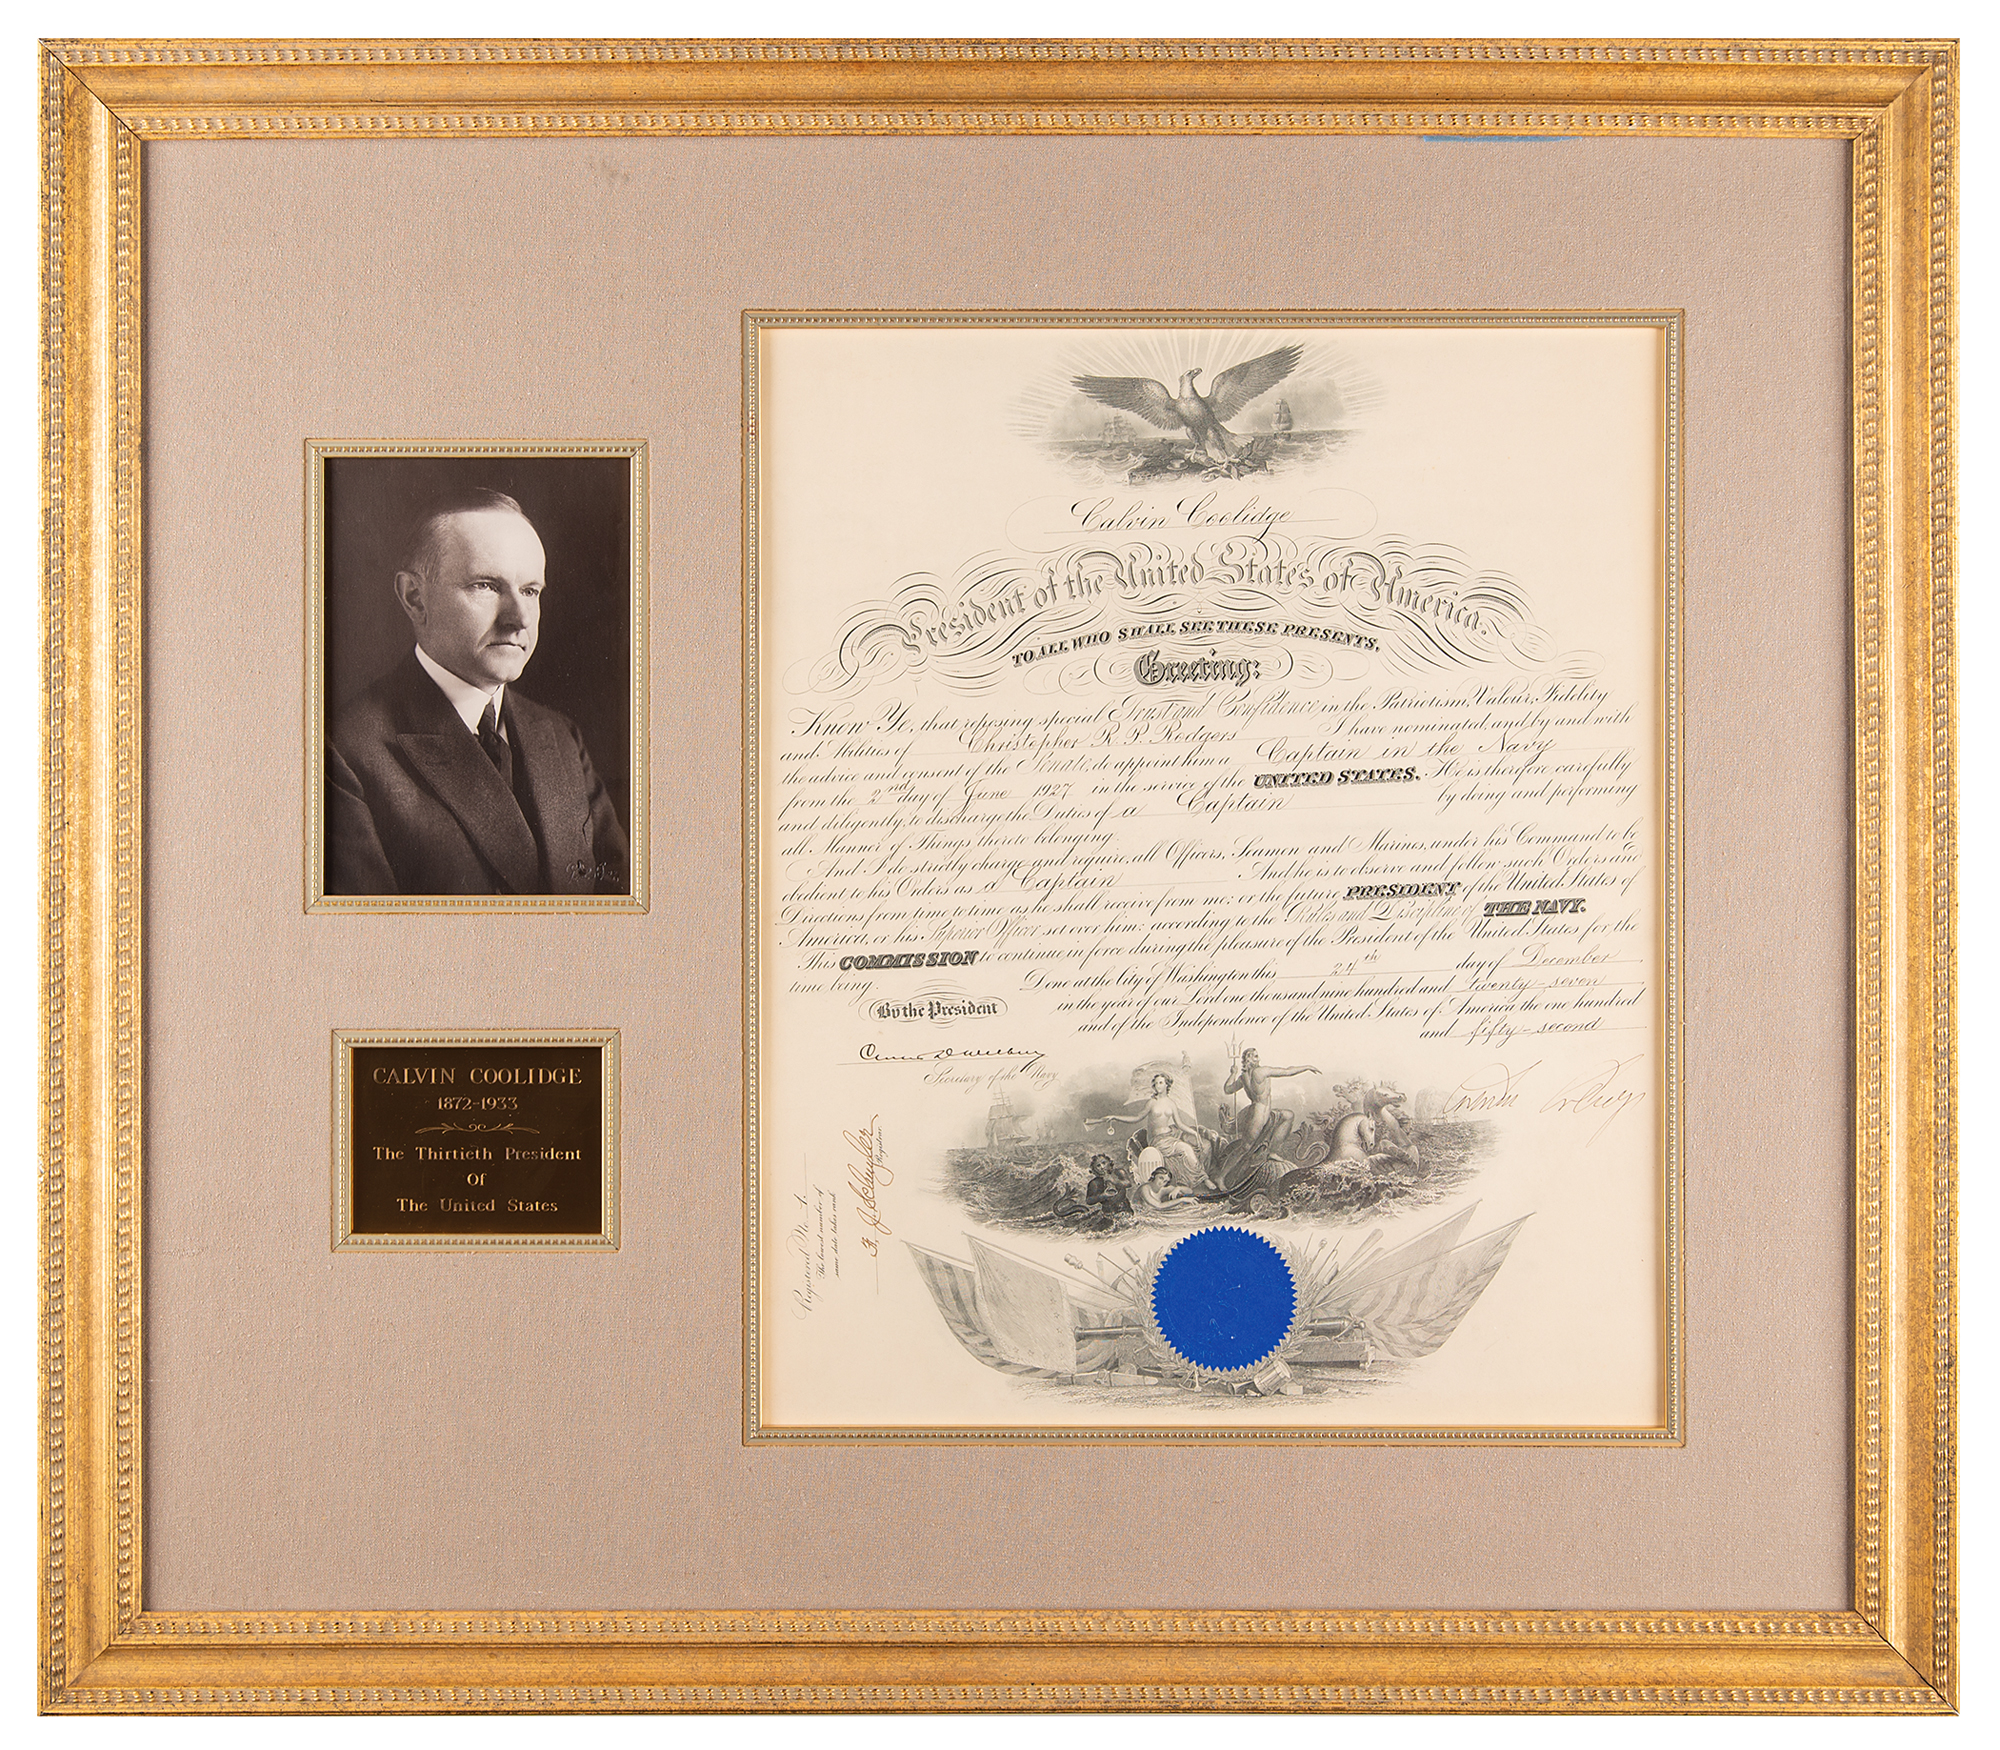 CALVIN COOLIDGE
1872-1933
The Thirtieth President
Of
The United States
Calvin Coolidge
President of the United States of America.
TO ALL WHO SHALL SEE THESE PRESENTS,
Greeting:
Know Ye, that reposing special Trust and Confidence in the Patriotism, Valour, Fidelity
and Abilities of Christopher R. P. Rodgers I have nominated, and by and with
the advice and consent of the Senate, do appoint him a Captain in the Navy
from the 2nd day of June 1927 in the service of the UNITED STATES. He is therefore carefully
and diligently to discharge the Duties of a Captain by doing and performing
all Manner of Things thereto belonging.
And I do strictly charge and require all Officers, Seamen and Marines, under his Command to be
obedient to his Orders as a Captain And he is to observe and follow such Orders and
Directions from time to time as he shall receive from me; or the future PRESIDENT of the United States of
America, or his Superior Officer set over him; according to the Rules and Discipline of THE NAVY.
This COMMISSION to continue in force during the pleasure of the President of the United States for the
time being.
Done at the City of Washington this 24th day of December
in the year of our Lord one thousand nine hundred and twenty-seven
and of the Independence of the United States of America the one hundred
and fifty-second
By the President
Curtis D Wilbur
Secretary of the Navy
Calvin Coolidge
Registered No. 1.
The lowest number of
same date takes rank
F. J. Schuyler
Registrar.